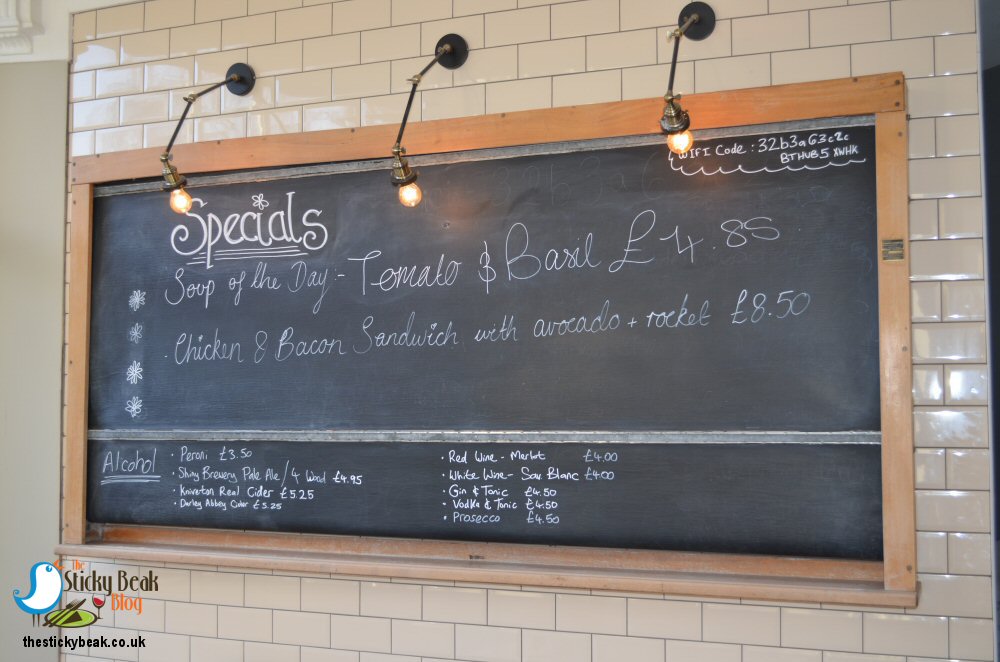 WIFI Code : 32b3a63c2c
BTHUB5 XWHK
Specials
Soup of the Day :- Tomato & Basil £4.85
· Chicken & Bacon Sandwich with avocado + rocket £8.50
Alcohol
· Peroni £3.50
· Shiny Brewery Pale Ale / 4 Wood £4.95
· Kniverton Real Cider £5.25
· Darley Abbey Cider £5.25
· Red Wine - Merlot £4.00
· White Wine - Sav. Blanc £4.00
· Gin & Tonic £4.50
· Vodka & Tonic £4.50
· Prosecco £4.50
The
Sticky Beak
Blog
thestickybeak.co.uk